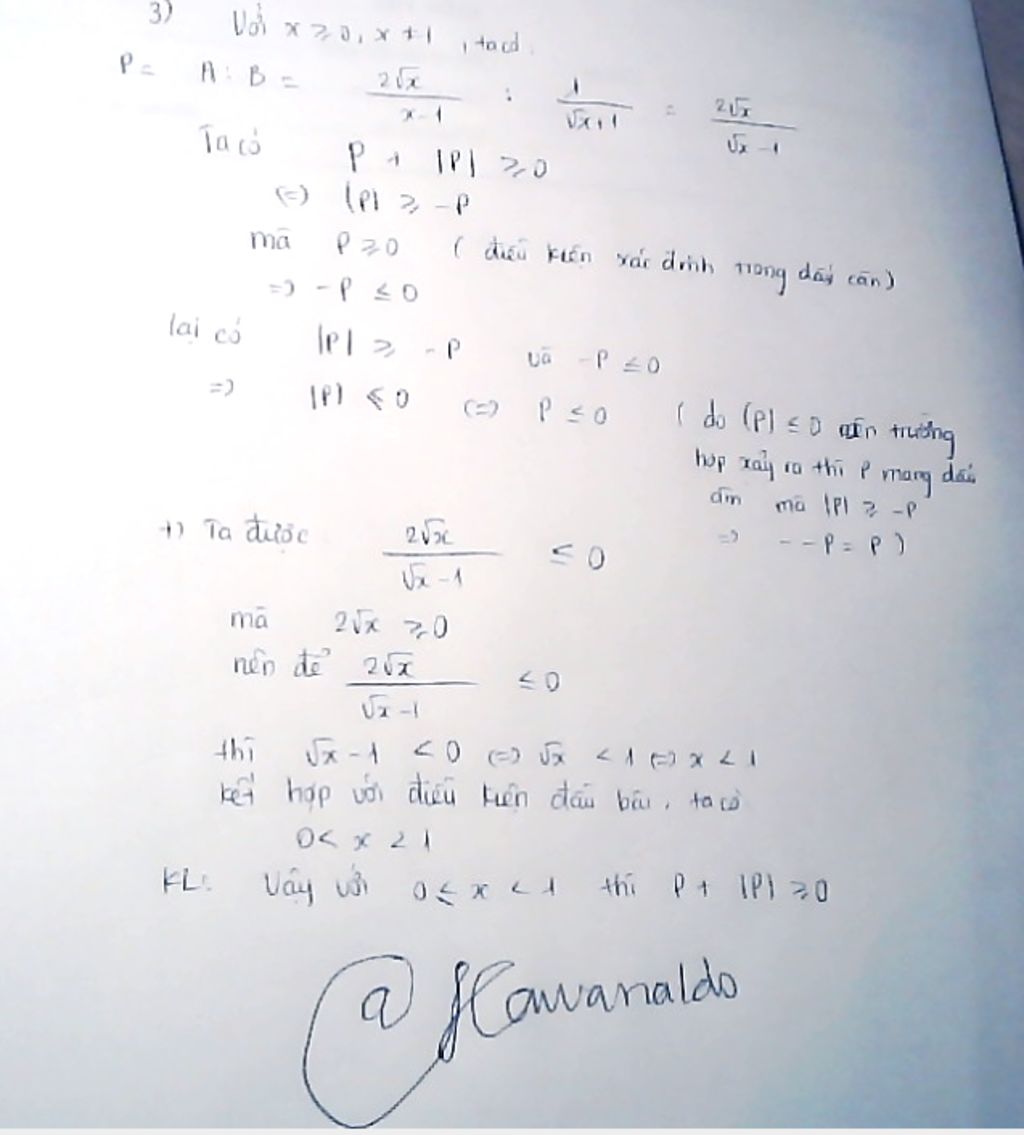 3) Với x ≥ 0, x ≠ 1, ta có:
P = A : B = 2√x / x-1 : 1 / √x+1 = 2√x / √x-1
Ta có P + |P| ≥ 0
(=) |P| ≥ -P
mà P ≥ 0 ( điều kiện xác định trong dấu căn)
=) -P ≤ 0
lại có |P| ≥ -P và -P ≤ 0
=) |P| ≤ 0 (=) P ≤ 0 ( do |P| ≤ 0 nên trường
hợp xảy ra thì P mang dấu
âm mà |P| ≥ -P
=) --P = P )
+) Ta được 2√x / √x-1 ≤ 0
mà 2√x ≥ 0
nên để 2√x / √x-1 ≤ 0
thì √x-1 < 0 (=) √x < 1 (=) x < 1
kết hợp với điều kiện đầu bài, ta có
0 < x < 1
KL: Vậy với 0 ≤ x < 1 thì P + |P| ≥ 0